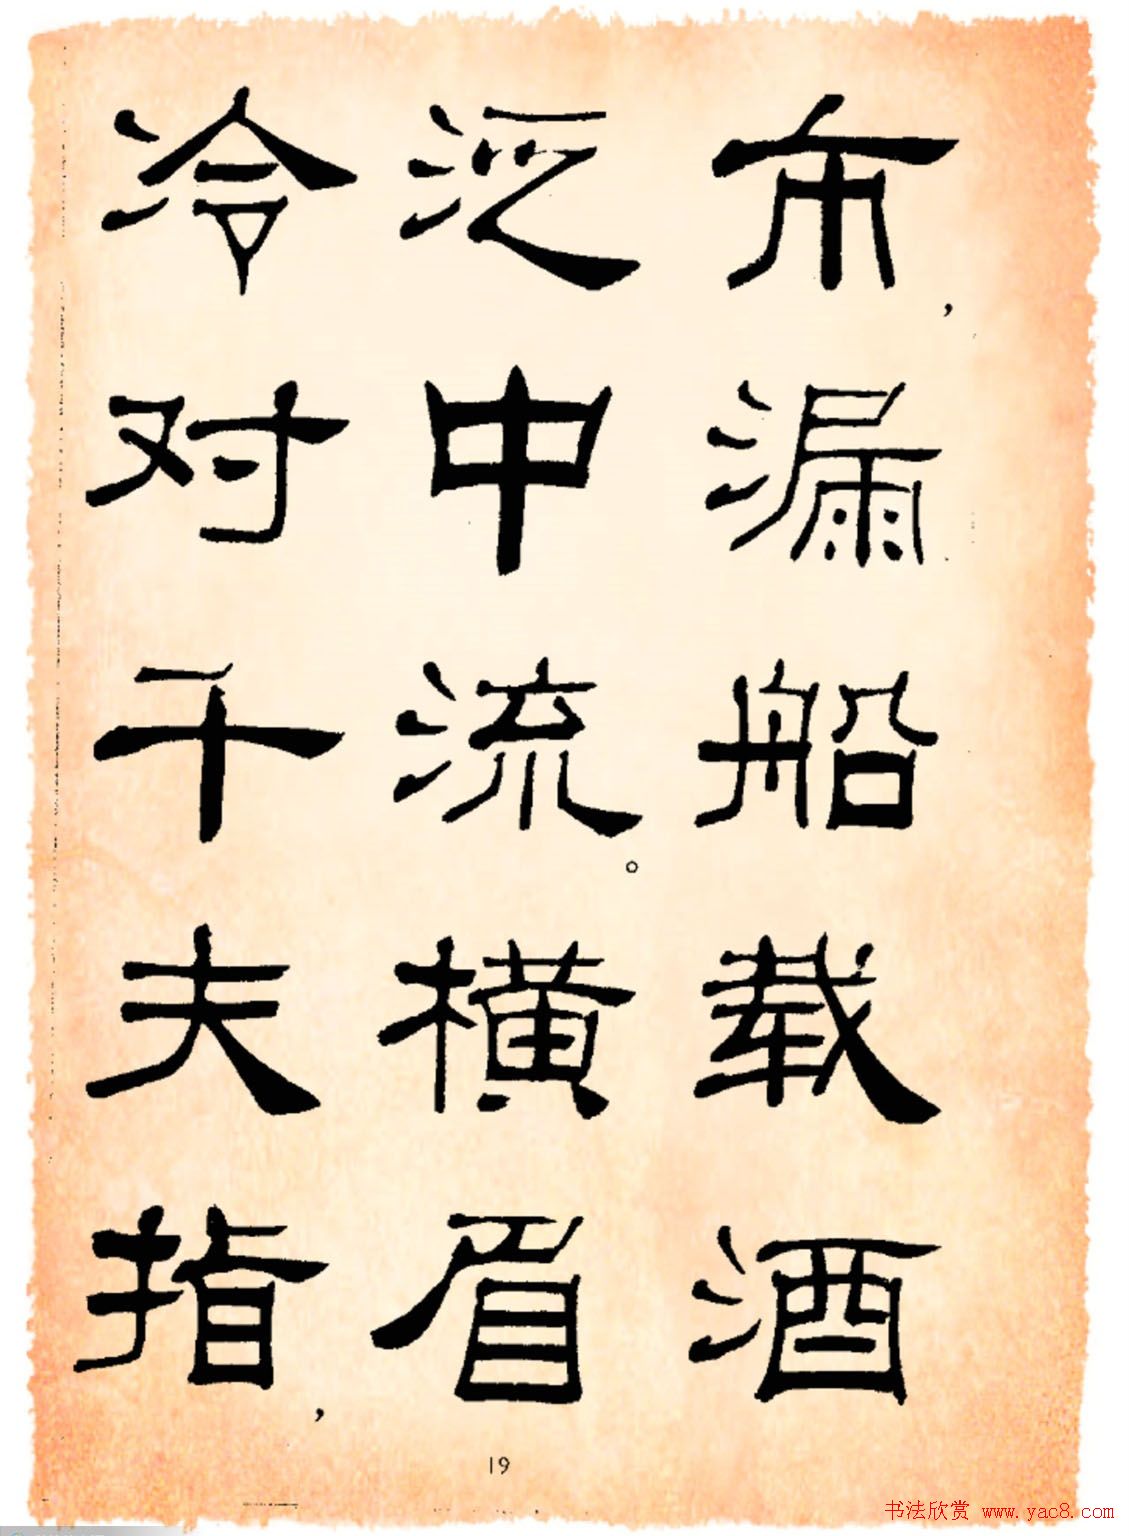 市，漏船载酒
泛中流。横眉
冷对千夫指，
19
书法欣赏 www.yac8.com